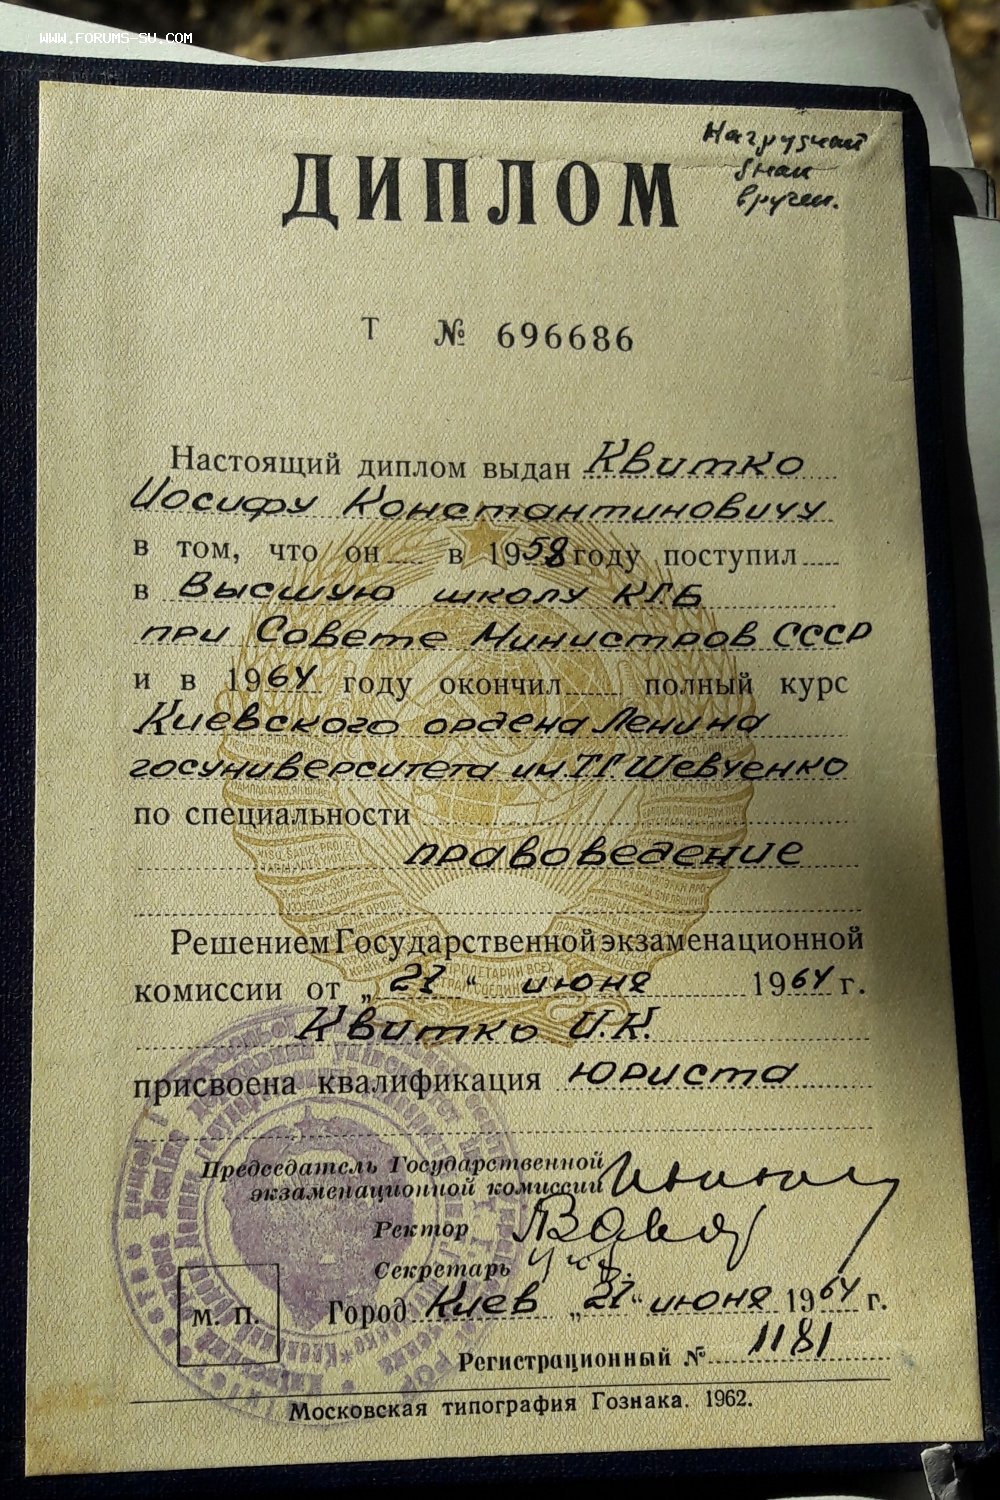 WWW.FORUMS-SU.COM
Нагрудный
знак
вручен.
ДИПЛОМ
Т № 696686
Настоящий диплом выдан Квитко
Иосифу Константиновичу
в том, что он в 1958 году поступил
в Высшую школу КГБ
при Совете Министров СССР
и в 1964 году окончил полный курс
Киевского ордена Ленина
госуниверситета им. Т.Г. Шевченко
по специальности
правоведение
Решением Государственной экзаменационной
комиссии от „27“ июня 1964 г.
Квитко И.К.
присвоена квалификация юриста
Председатель Государственной
экзаменационной комиссии
Ректор
Секретарь
М. П.
Город Киев „27“ июня 1964 г.
Регистрационный № 1181
Московская типография Гознака. 1962.